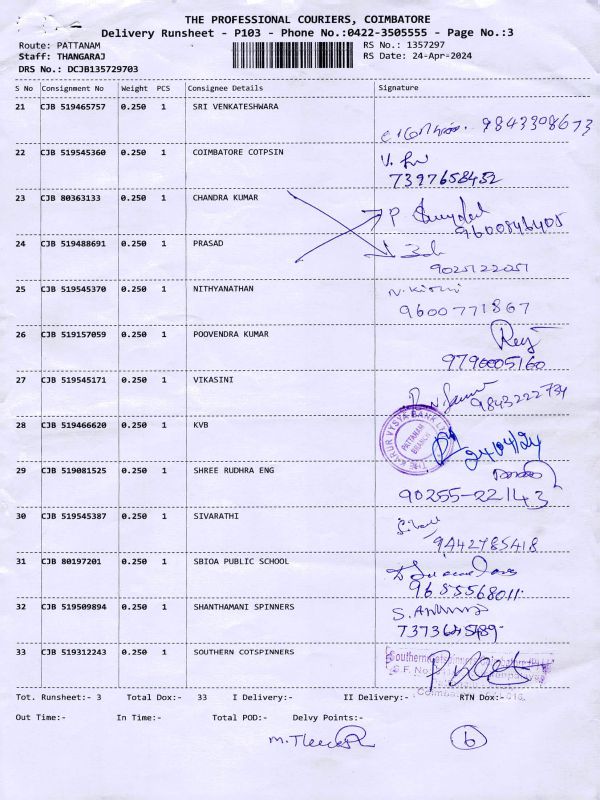 THE PROFESSIONAL COURIERS, COIMBATORE
Delivery Runsheet - P103 - Phone No.:0422-3505555 - Page No.:3
Route: PATTANAM RS No.: 1357297
Staff: THANGARAJ RS Date: 24-Apr-2024
DRS No.: DCJB135729703
S No Consignment No Weight PCS Consignee Details Signature
21 CJB 519465757 0.250 1 SRI VENKATESHWARA
9843308673
22 CJB 519545360 0.250 1 COIMBATORE COTPSIN
7397658452
23 CJB 80363133 0.250 1 CHANDRA KUMAR
P
9600846405
24 CJB 519488691 0.250 1 PRASAD
9025122051
25 CJB 519545370 0.250 1 NITHYANATHAN
9600771867
26 CJB 519157059 0.250 1 POOVENDRA KUMAR
9790005160
27 CJB 519545171 0.250 1 VIKASINI
9843222734
28 CJB 519466620 0.250 1 KVB
THE KARUR VYSYA BANK LTD
PATTANAM
BRANCH
24/04/24
29 CJB 519081525 0.250 1 SHREE RUDHRA ENG
90255-22143
30 CJB 519545387 0.250 1 SIVARATHI
9442785418
31 CJB 80197201 0.250 1 SBIOA PUBLIC SCHOOL
9655568011
32 CJB 519509894 0.250 1 SHANTHAMANI SPINNERS
33 CJB 519312243 0.250 1 SOUTHERN COTSPINNERS
Tot. Runsheet:- 3 Total Dox:- 33 I Delivery:- II Delivery:- RTN Dox:-
Out Time:- In Time:- Total POD:- Delvy Points:-
6